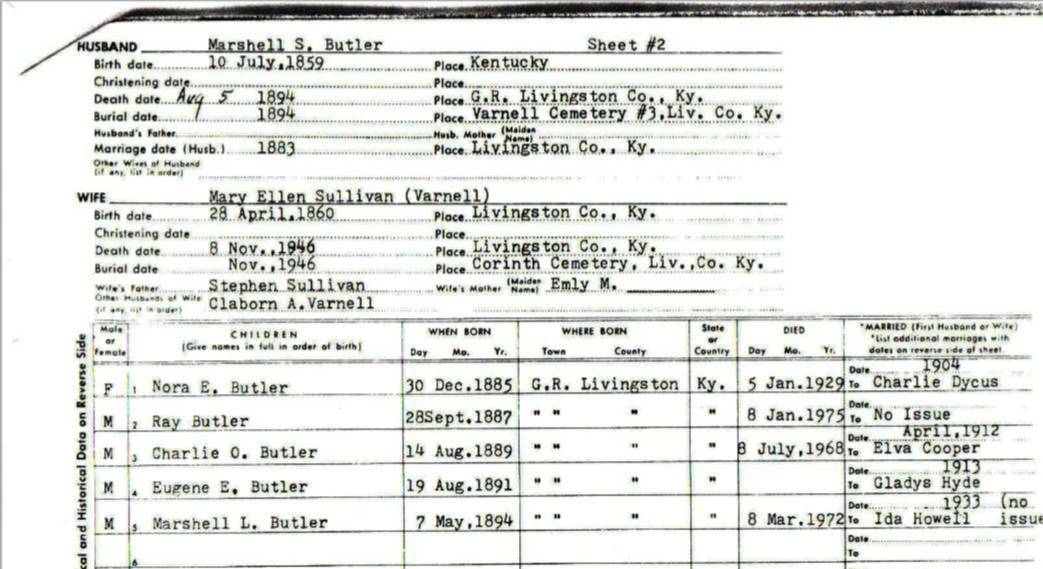 HUSBAND Marshell S. Butler Sheet #2
Birth date 10 July,1859 Place Kentucky
Christening date Place
Death date Aug 5 1894 Place G.R. Livingston Co., Ky.
Burial date 1894 Place Varnell Cemetery #3,Liv. Co. Ky.
Husband's Father Husb. Mother (Maiden Name)
Marriage date (Husb.) 1883 Place Livingston Co., Ky.
Other Wives of Husband
(if any, list in order)
WIFE Mary Ellen Sullivan (Varnell)
Birth date 28 April,1860 Place Livingston Co., Ky.
Christening date Place
Death date 8 Nov.,1946 Place Livingston Co., Ky.
Burial date Nov.,1946 Place Corinth Cemetery, Liv.,Co. Ky.
Wife's Father Stephen Sullivan Wife's Mother (Maiden Name) Emly M.
Other Husbands of Wife
(if any, list in order) Claborn A.Varnell
Male or Female CHILDREN (Give names in full in order of birth) WHEN BORN Day Mo. Yr. WHERE BORN Town County State or Country DIED Day Mo. Yr. *MARRIED (First Husband or Wife) *List additional marriages with dates on reverse side of sheet.
F 1 Nora E. Butler 30 Dec.1885 G.R. Livingston Ky. 5 Jan.1929 Date 1904 To Charlie Dycus
M 2 Ray Butler 28Sept.1887 " " " " 8 Jan.1975 Date To No Issue
M 3 Charlie O. Butler 14 Aug.1889 " " " " 8 July,1968 Date April,1912 To Elva Cooper
M 4 Eugene E. Butler 19 Aug.1891 " " " " Date 1913 To Gladys Hyde
M 5 Marshell L. Butler 7 May,1894 " " " " 8 Mar.1972 Date 1933 (no issue To Ida Howell
6 Date To
cal and Historical Data on Reverse Side